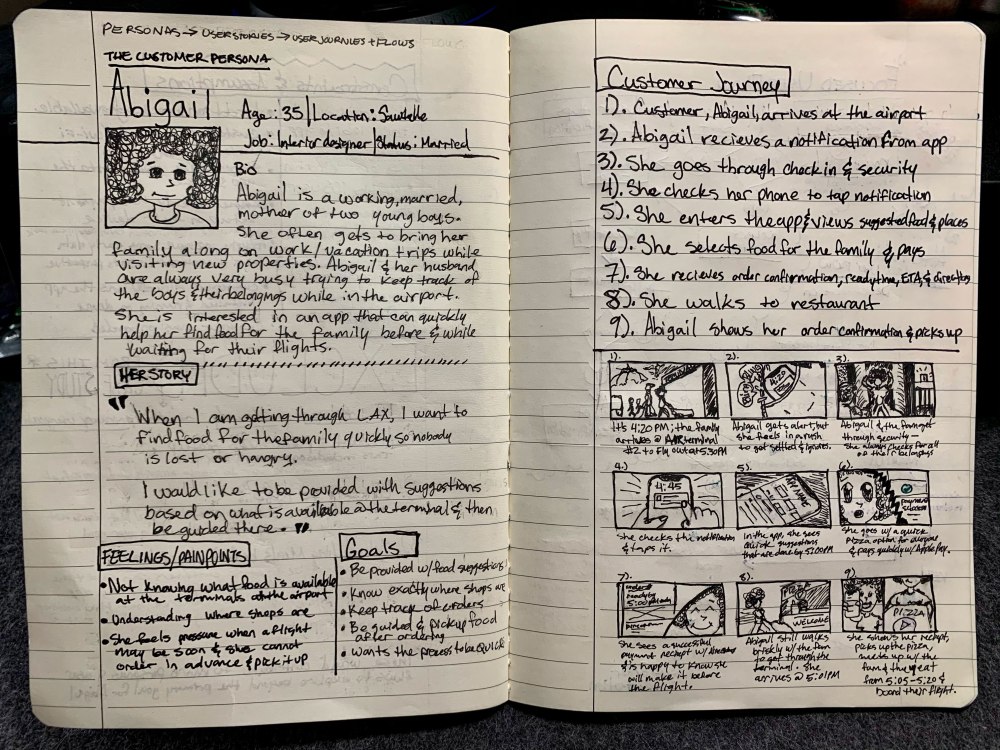 PERSONAS → USER STORIES → USER JOURNIES + FLOWS
THE CUSTOMER PERSONA
Abigail
Age: 35 | Location: Sawtelle
Job: Interior designer | Status: Married
Bio
Abigail is a working, married,
mother of two young boys.
She often gets to bring her
family along on work/vacation trips while
visiting new properties. Abigail & her husband
are always very busy trying to keep track of
the boys & their belongings while in the airport.
She is interested in an app that can quickly
help her find food for the family before & while
waiting for their flights.
HER STORY
"When I am getting through LAX, I want to
find food for the family quickly so nobody
is lost or hangry.
I would like to be provided with suggestions
based on what is available @ the terminal & then
be guided there."
FEELINGS/PAINPOINTS
• Not knowing what food is available
at the terminals at the airport
• Understanding where shops are
• She feels pressure when a flight
may be soon & she cannot
order in advance & pick it up
Goals
• Be provided w/ food suggestions
• Know exactly where shops are
• Keep track of orders
• Be guided & pickup food
after ordering
• Wants the process to be quick
Customer Journey
1). Customer, Abigail, arrives at the airport
2). Abigail recieves a notification from app
3). She goes through check in & security
4). She checks her phone to tap notification
5). She enters the app & views suggested food & places
6). She selects food for the family & pays
7). She recieves order confirmation, ready time, ETA, & directions
8). She walks to restaurant
9). Abigail shows her order confirmation & picks up
1).
It's 4:20 PM; the family
arrives @ AIR terminal
#2 to fly out at 5:30PM
2).
4:20
Abigail gets alert, but
she feels in a rush
to get settled & ignores.
3).
Abigail & the fam get
through security —
she always checks for all
of their belongings
4.)
4:45
she checks the notification
& taps it.
5).
APP NAME
In the app, she sees
quick suggestions
that are done by 5:00PM
6)
payment
success
She goes w/ a quick
pizza option for everyone
& pays quickly w/ Apple Pay.
7)
5:00
She sees a successful
payment receipt w/ directions
& is happy to know she
will make it before
the flight.
8).
PIZZA
WELCOME
Abigail still walks
briskly w/ the fam
to get through the
terminal. She
arrives @ 5:01PM
9)
PIZZA
She shows her receipt,
picks up the pizza,
meets up w/ the
fam & they eat
from 5:05-5:20 &
board their flight.